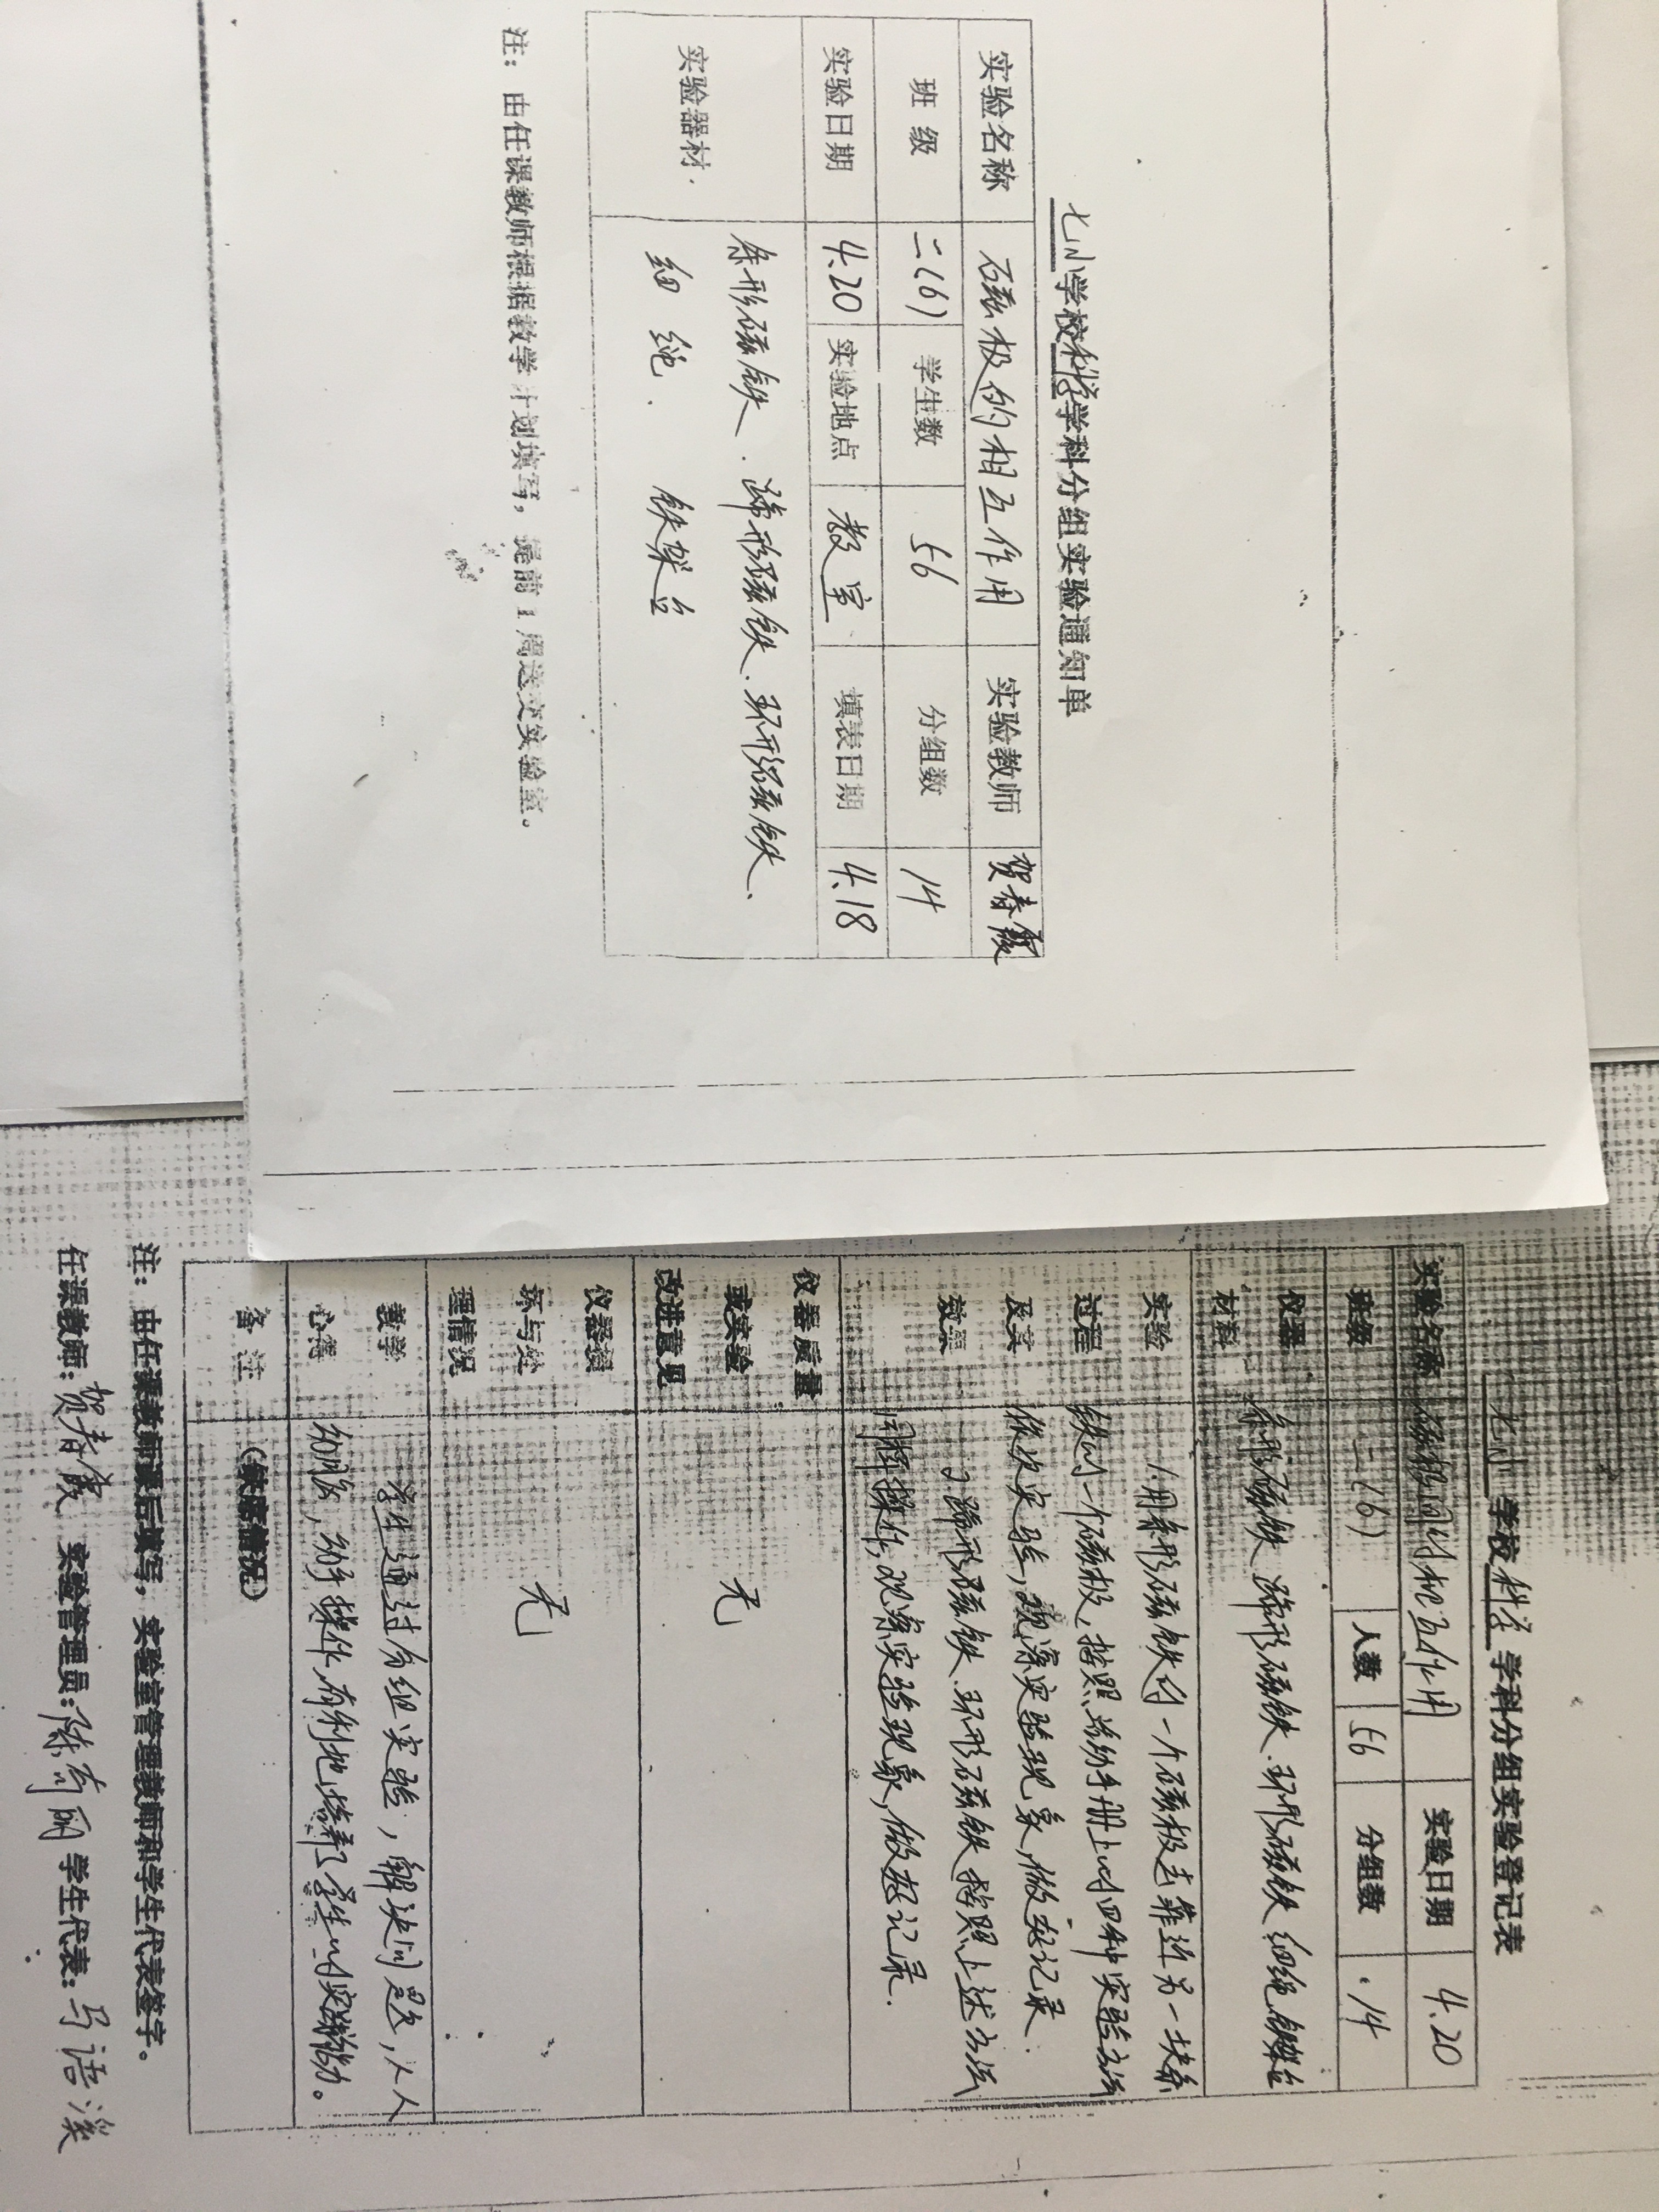 七小学校科学学科分组实验通知单
实验名称 石磁极的相互作用 实验教师 贺春霞
班级 二(6) 学生数 56 分组数 14
实验日期 4.20 实验地点 教室 填表日期 4.18
实验器材 条形磁铁、蹄形磁铁、环形磁铁、
细绳、铁架台
注：由任课教师根据教学计划填写，提前1周送交实验室。
七小学校科学学科分组实验登记表
实验名称 磁极间的相互作用 实验日期 4.20
班级 二(6) 人数 56 分组数 14
仪器
材料
条形磁铁 蹄形磁铁、环形磁铁 细绳 铁架台
实验
过程
及其
效果
1.用条形磁铁的一个磁极去靠近另一块条
铁的一个磁极，按照活动手册上的四种实验方法
依次实验，观察实验现象，做好记录.
2.蹄形磁铁、环形磁铁按照上述方法
同样操作，观察实验现象，做好记录.
仪器质量
或实验
改进意见
无
仪器损
坏与处
理情况
无
教学
心得
学生通过分组实验，解决问题，人人
动脑，动手操作，有利地培养了学生的实践能力。
备注
(缺席情况)
注：由任课教师课后填写，实验室管理教师和学生代表签字。
任课教师：贺春霞 实验管理员：陈奇丽 学生代表：马语溪